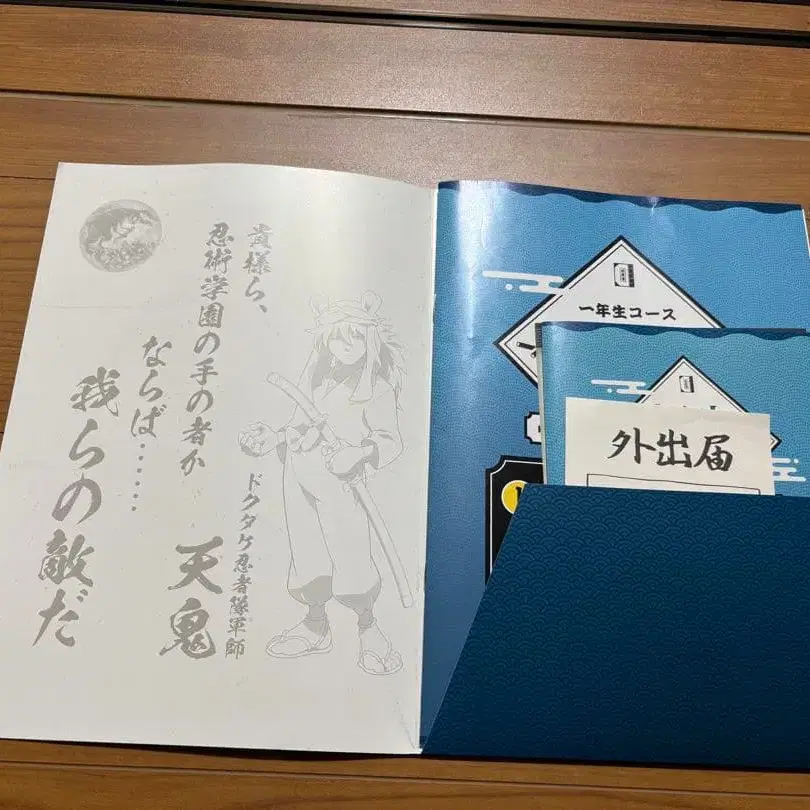 貴様ら、
忍術学園の手の者か
ならば……
我らの敵だ
ドクタケ忍者隊軍師
天鬼
一年生コース
外出届